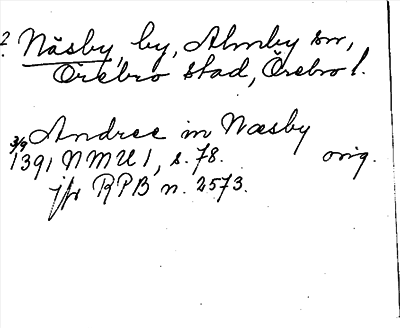 2. Näsby, by, Almby sn,
Örebro stad, Örebro l.
Andree in Næsby
3/9 1391 NMU 1, s. 78. orig.
jfr RPB n. 2573.